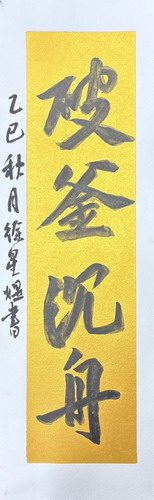 破釜沉舟
乙巳秋月徐星煜書